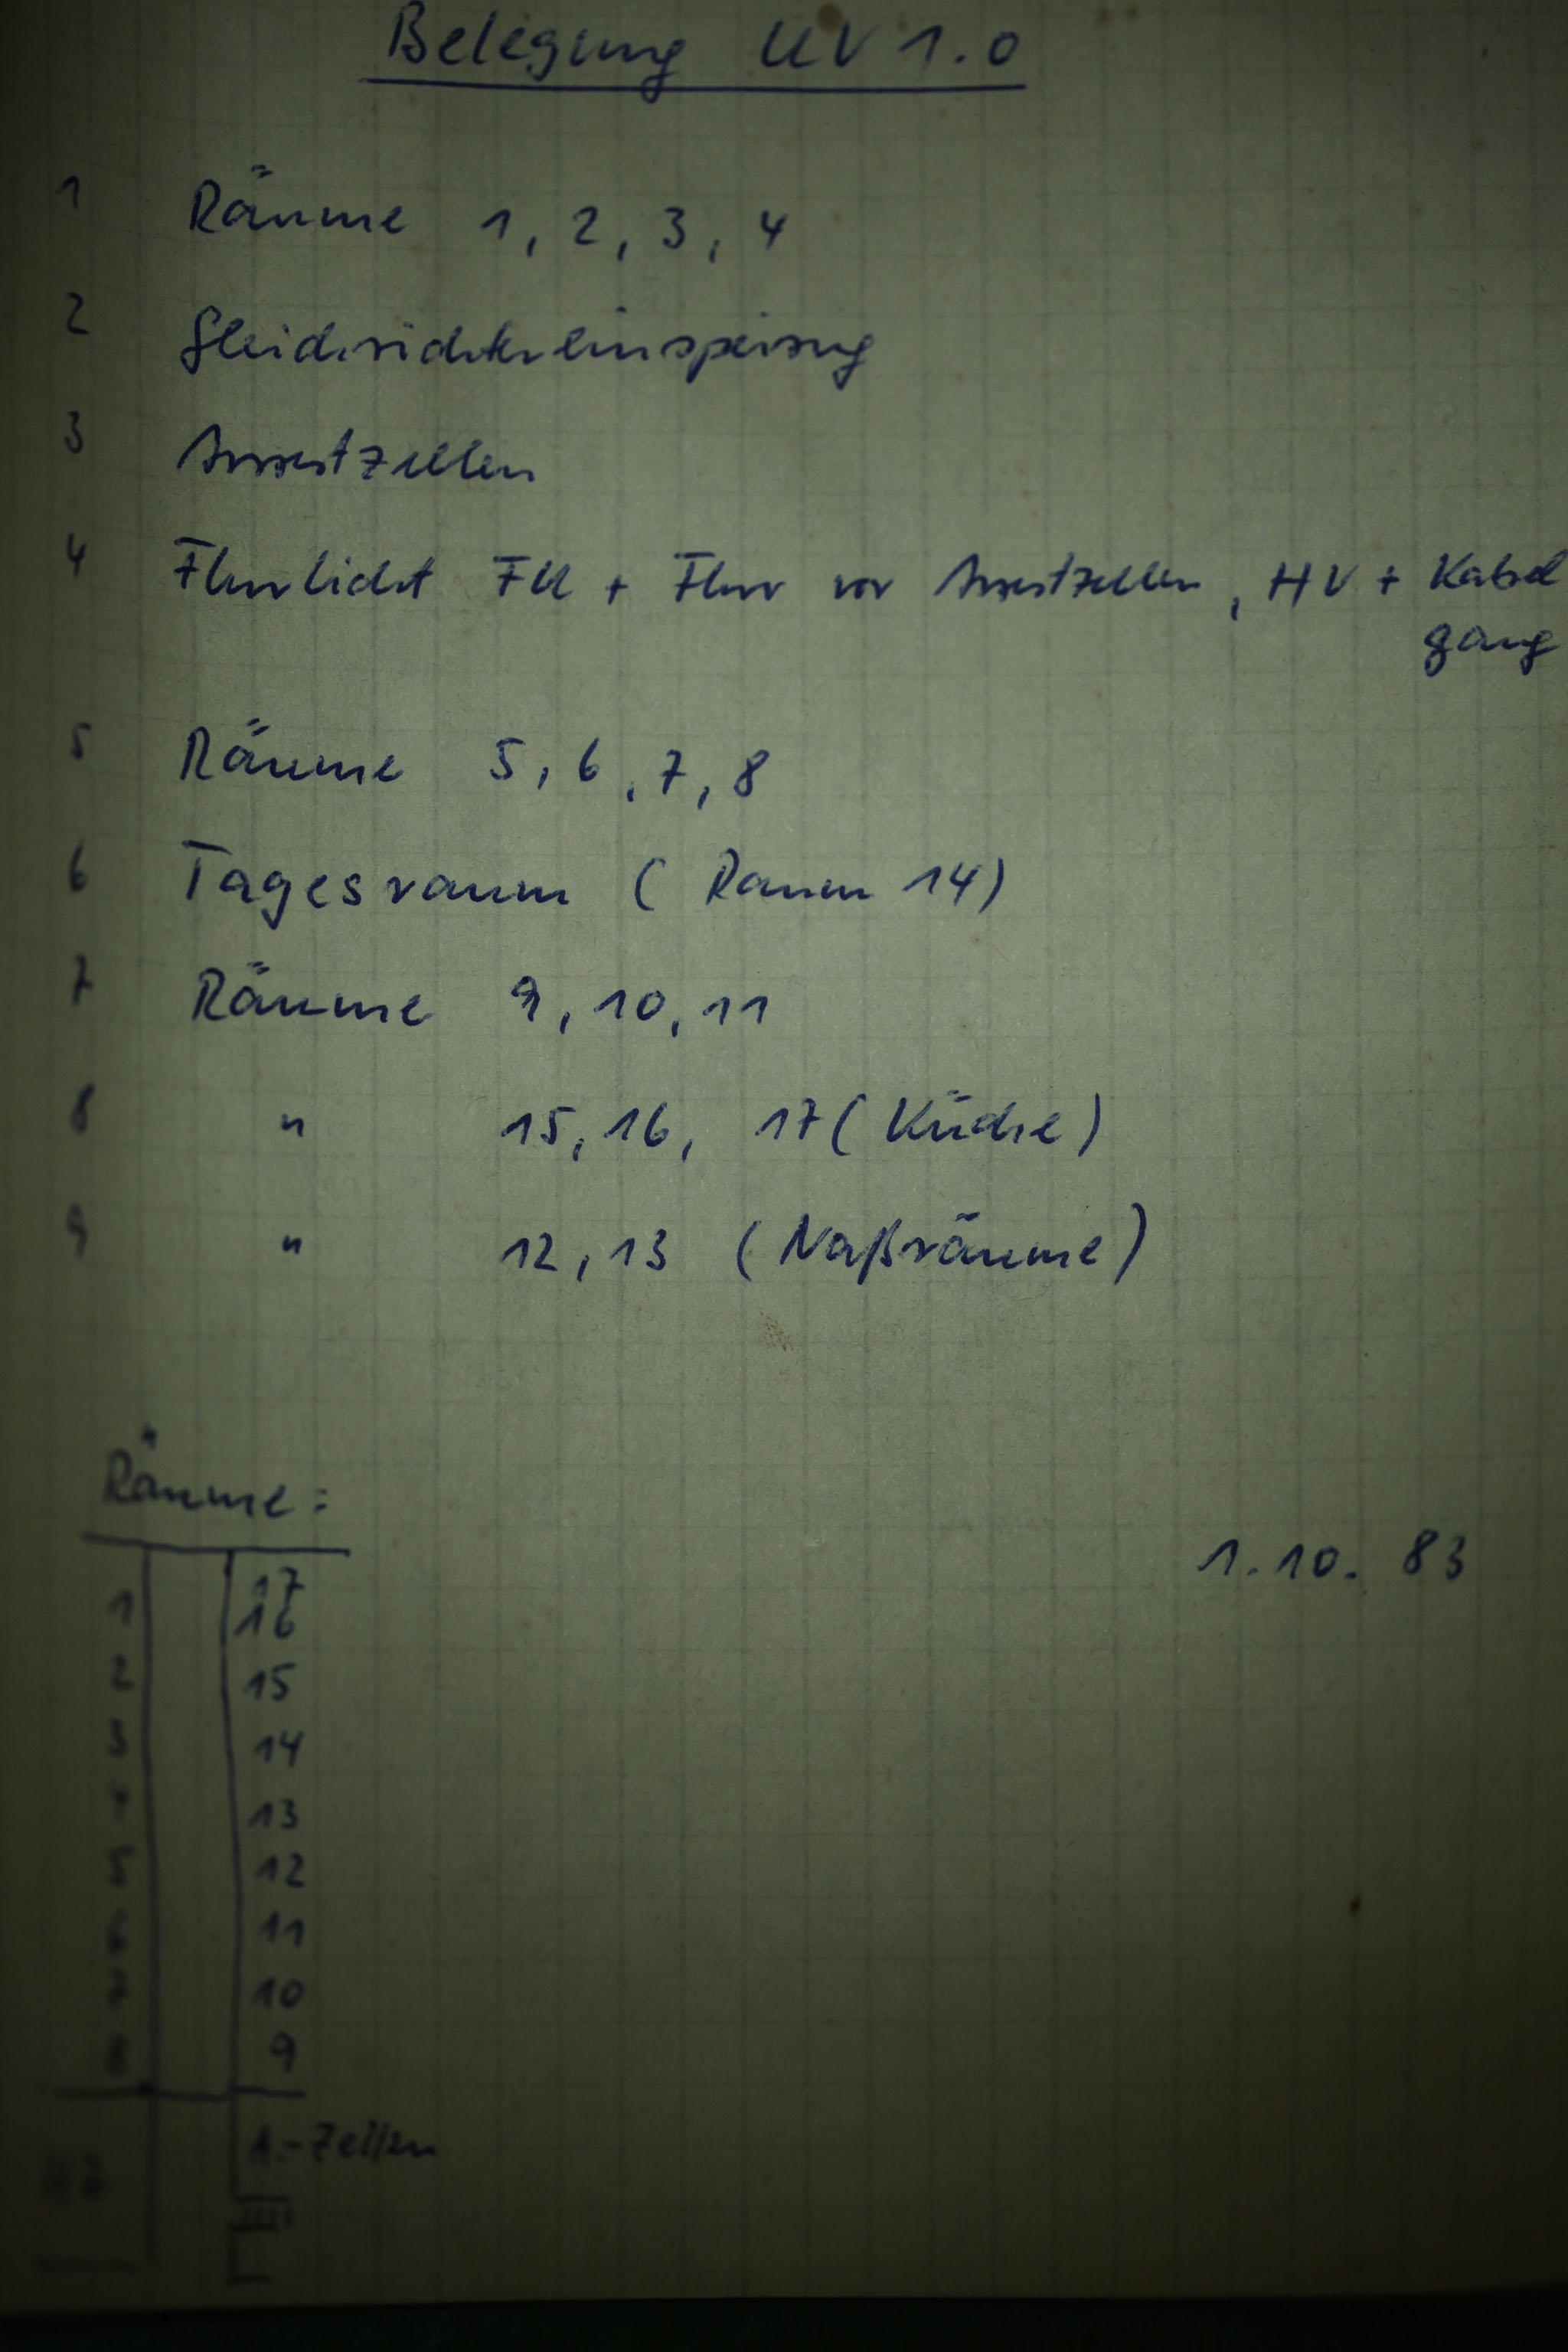 Belegung UV 1.0
1 Räume 1, 2, 3, 4
2 Gleichrichtereinspeisung
3 Arrestzellen
4 Flurlicht FU + Flur vor Arrestzellen, HV + Kabel
gang
5 Räume 5, 6, 7, 8
6 Tagesraum (Raum 14)
7 Räume 9, 10, 11
8 " 15, 16, 17 (Küche)
9 " 12, 13 (Naßräume)
Räume:
1.10. 83
17
1 16
2 15
3 14
4 13
5 12
6 11
7 10
8 9
A.-Zellen